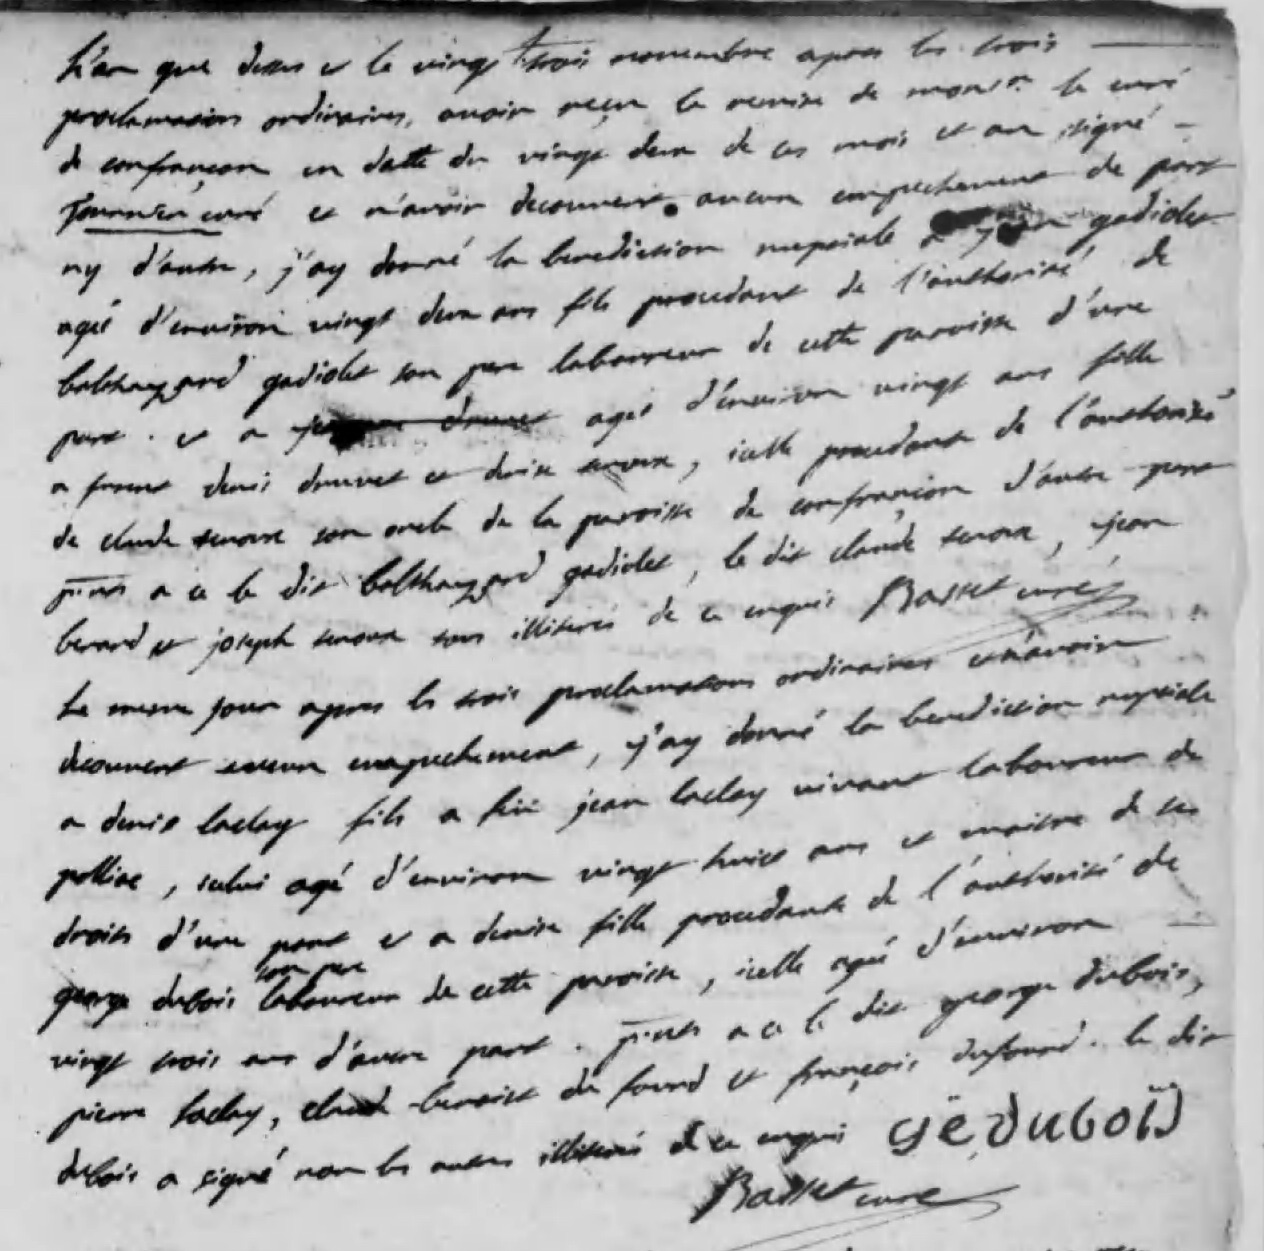 L'an que dessus et le vingt trois novembre apres les trois
proclamations ordinaires, avoir reçu la remise de monsr le curé
de confrançon en datte du vingt deux de ces mois et an signé
fournier curé et n'avoir decouvert aucun empechement de part
ny d'autre, j'ay donné la benediction nuptiale a jean gadiolet
agé d'environ vingt deux ans fils procedant de l'authorité de
balthazard gadiolet son pere laboureur de cette paroisse d'une
part. et a druvet agée d'environ vingt ans fille
a furent denis druvet et denise, icelle procedante de l'authorité
de claude son oncle de la paroisse de confrançon d'autre part
pnts a ce le dit balthazard gadiolet, le dit claude, jean
berard et joseph tous illiterés de ce enquis Basset curé
Le meme jour apres les trois proclamations ordinaires et n'avoir
decouvert aucun empechement, j'ay donné la benediction nuptiale
a denis laclay fils a feu jean laclay vivant laboureur de
polliat, celui agé d'environ vingt huit ans et maitre de ses
droits d'une part et a denise fille procedante de l'authorité de
george dubois son pere laboureur de cette paroisse, icelle agée d'environ
vingt trois ans d'autre part. pnts a ce le dit george dubois,
pierre laclay, claude benoist du fourd et françois dufourd. le dit
dubois a signé non les autres illiterés de ce enquis GE DUBOIS
Basset curé